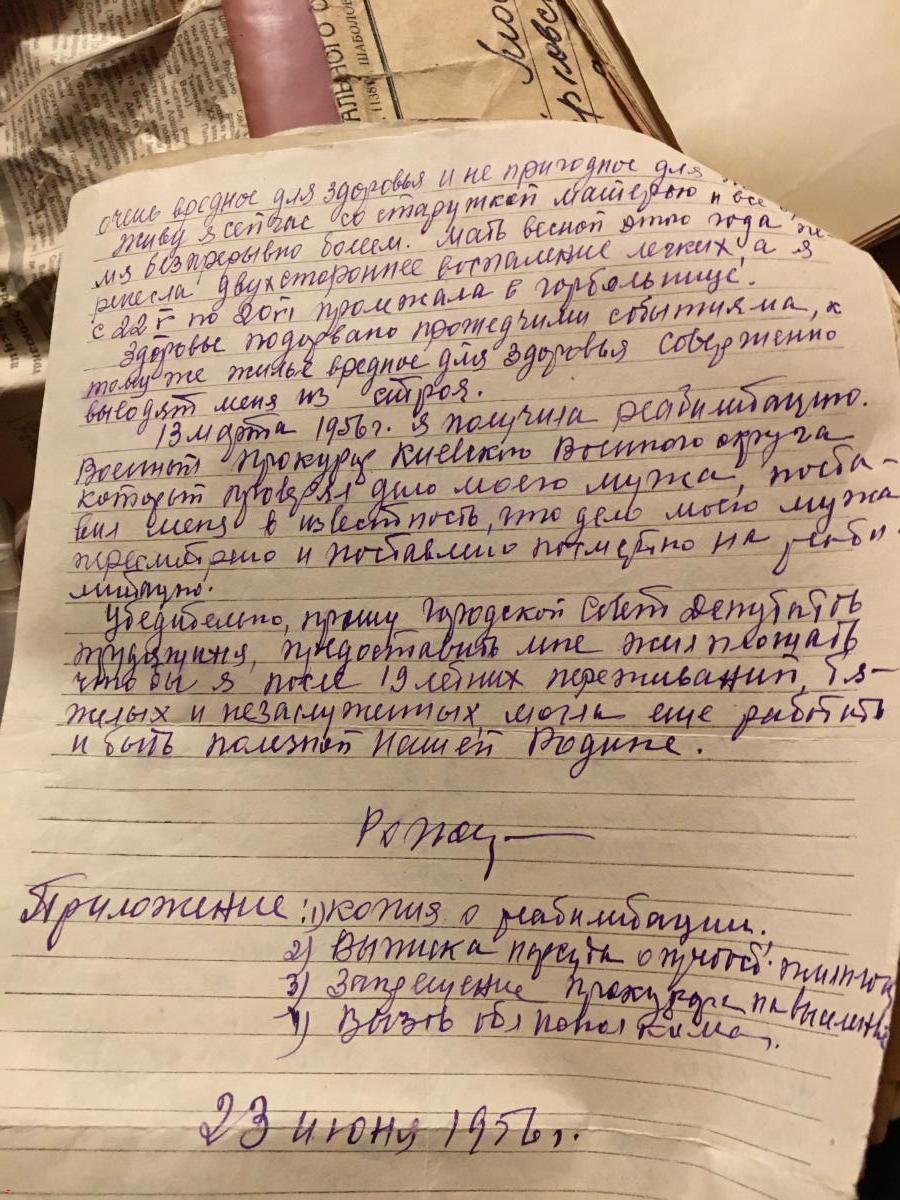 АЛЬНОГО О
113814 ШАБОЛОВ
очень вредное для здоровья и не пригодное для
Живу я сейчас со старухкой матерью и все
мя безпрерывно болеем. Мать весной этого года пе
ренесла двухстороннее воспаление легких, а я
с 22 по пролежала в горбольнице.
Здоровье подорвано прошедчими событияма, к
тому же жилье вредное для здоровья соверженно
выводят меня из строя.
13 марта 1956г. я получила реабилитацию.
Военный Прокурор Киевского Военного округа
который проверял дело моего мужа, поста-
вил меня в известность, что дело моего мужа
пересмотрено и поставлено посмертно на реаби-
литацию.
Убедительно, прошу Городской Совет Депутатов
трудящихся, предоставить мне жилплощадь
что бы я после 19 летних переживаний, тя-
желых и незаслуженных могла еще работать
и быть полезной Нашей Родине.
Приложение: 1) копия о реабилитации.
2) Выписка о
3) Запрещение прокурора на выселение
4) Вызов
23 июня 1956г.